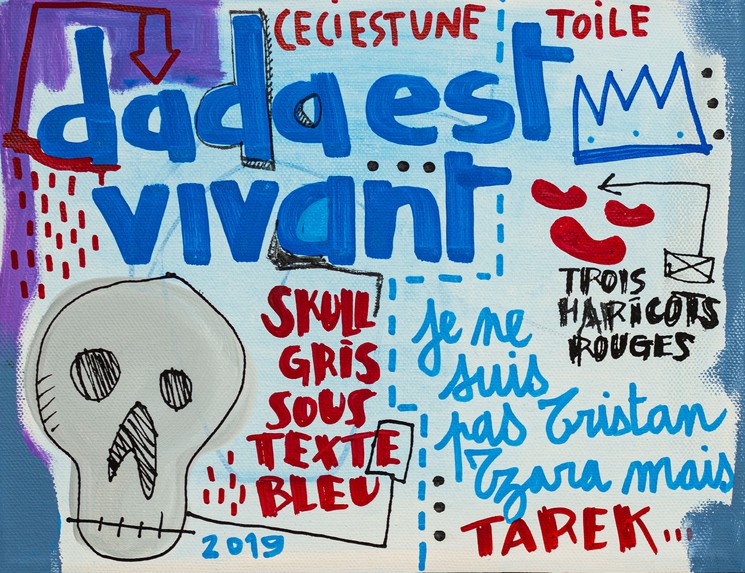 CECI EST UNE TOILE
dada est
vivant
TROIS
HARICOTS
ROUGES
SKULL
GRIS
SOUS
TEXTE
BLEU
je ne
suis
pas Tristan
Tzara mais
TAREK...
2019